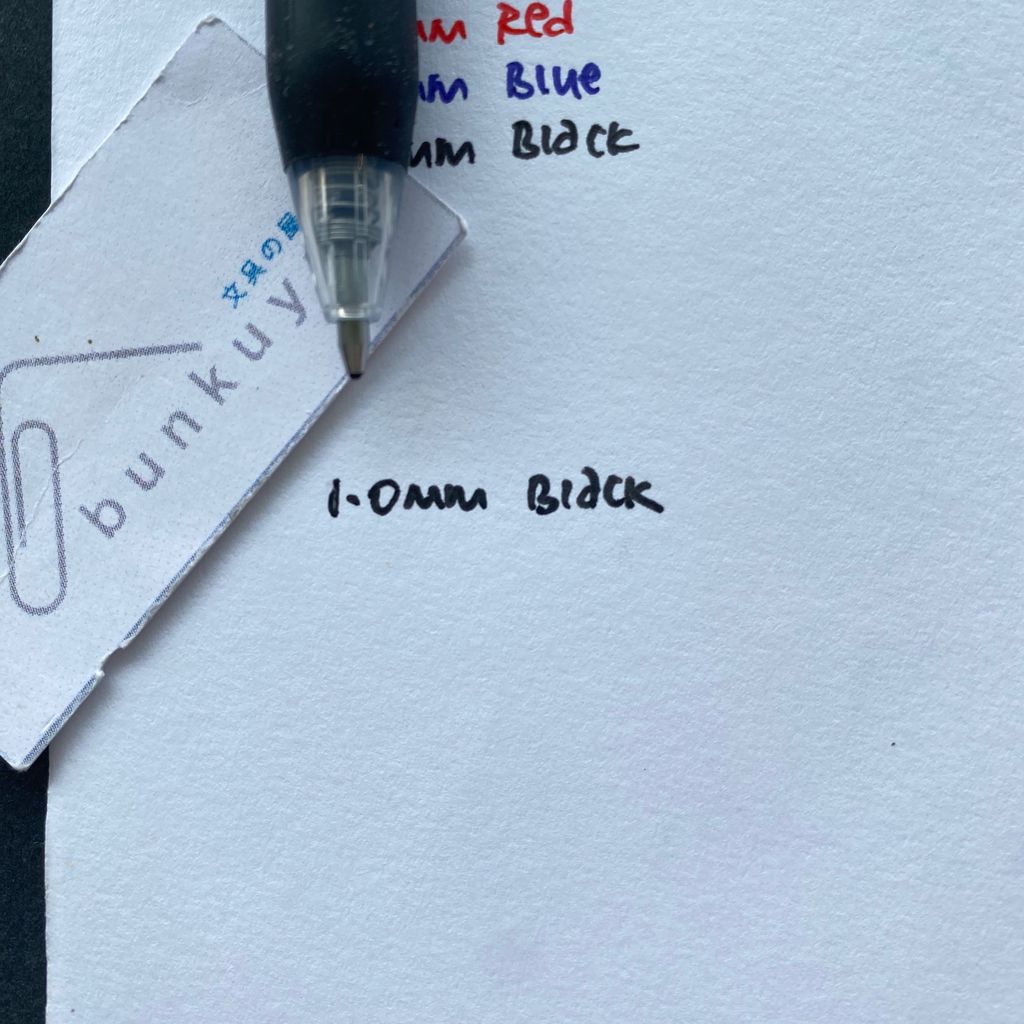 mm Red
mm Blue
mm Black
文具の
bunkuy
1.0mm Black